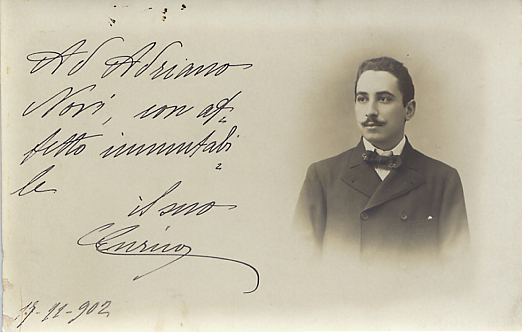 Ad Adriano
Novi, con af=
fetto immutabi=
le
il suo
Enrico
17-11-902